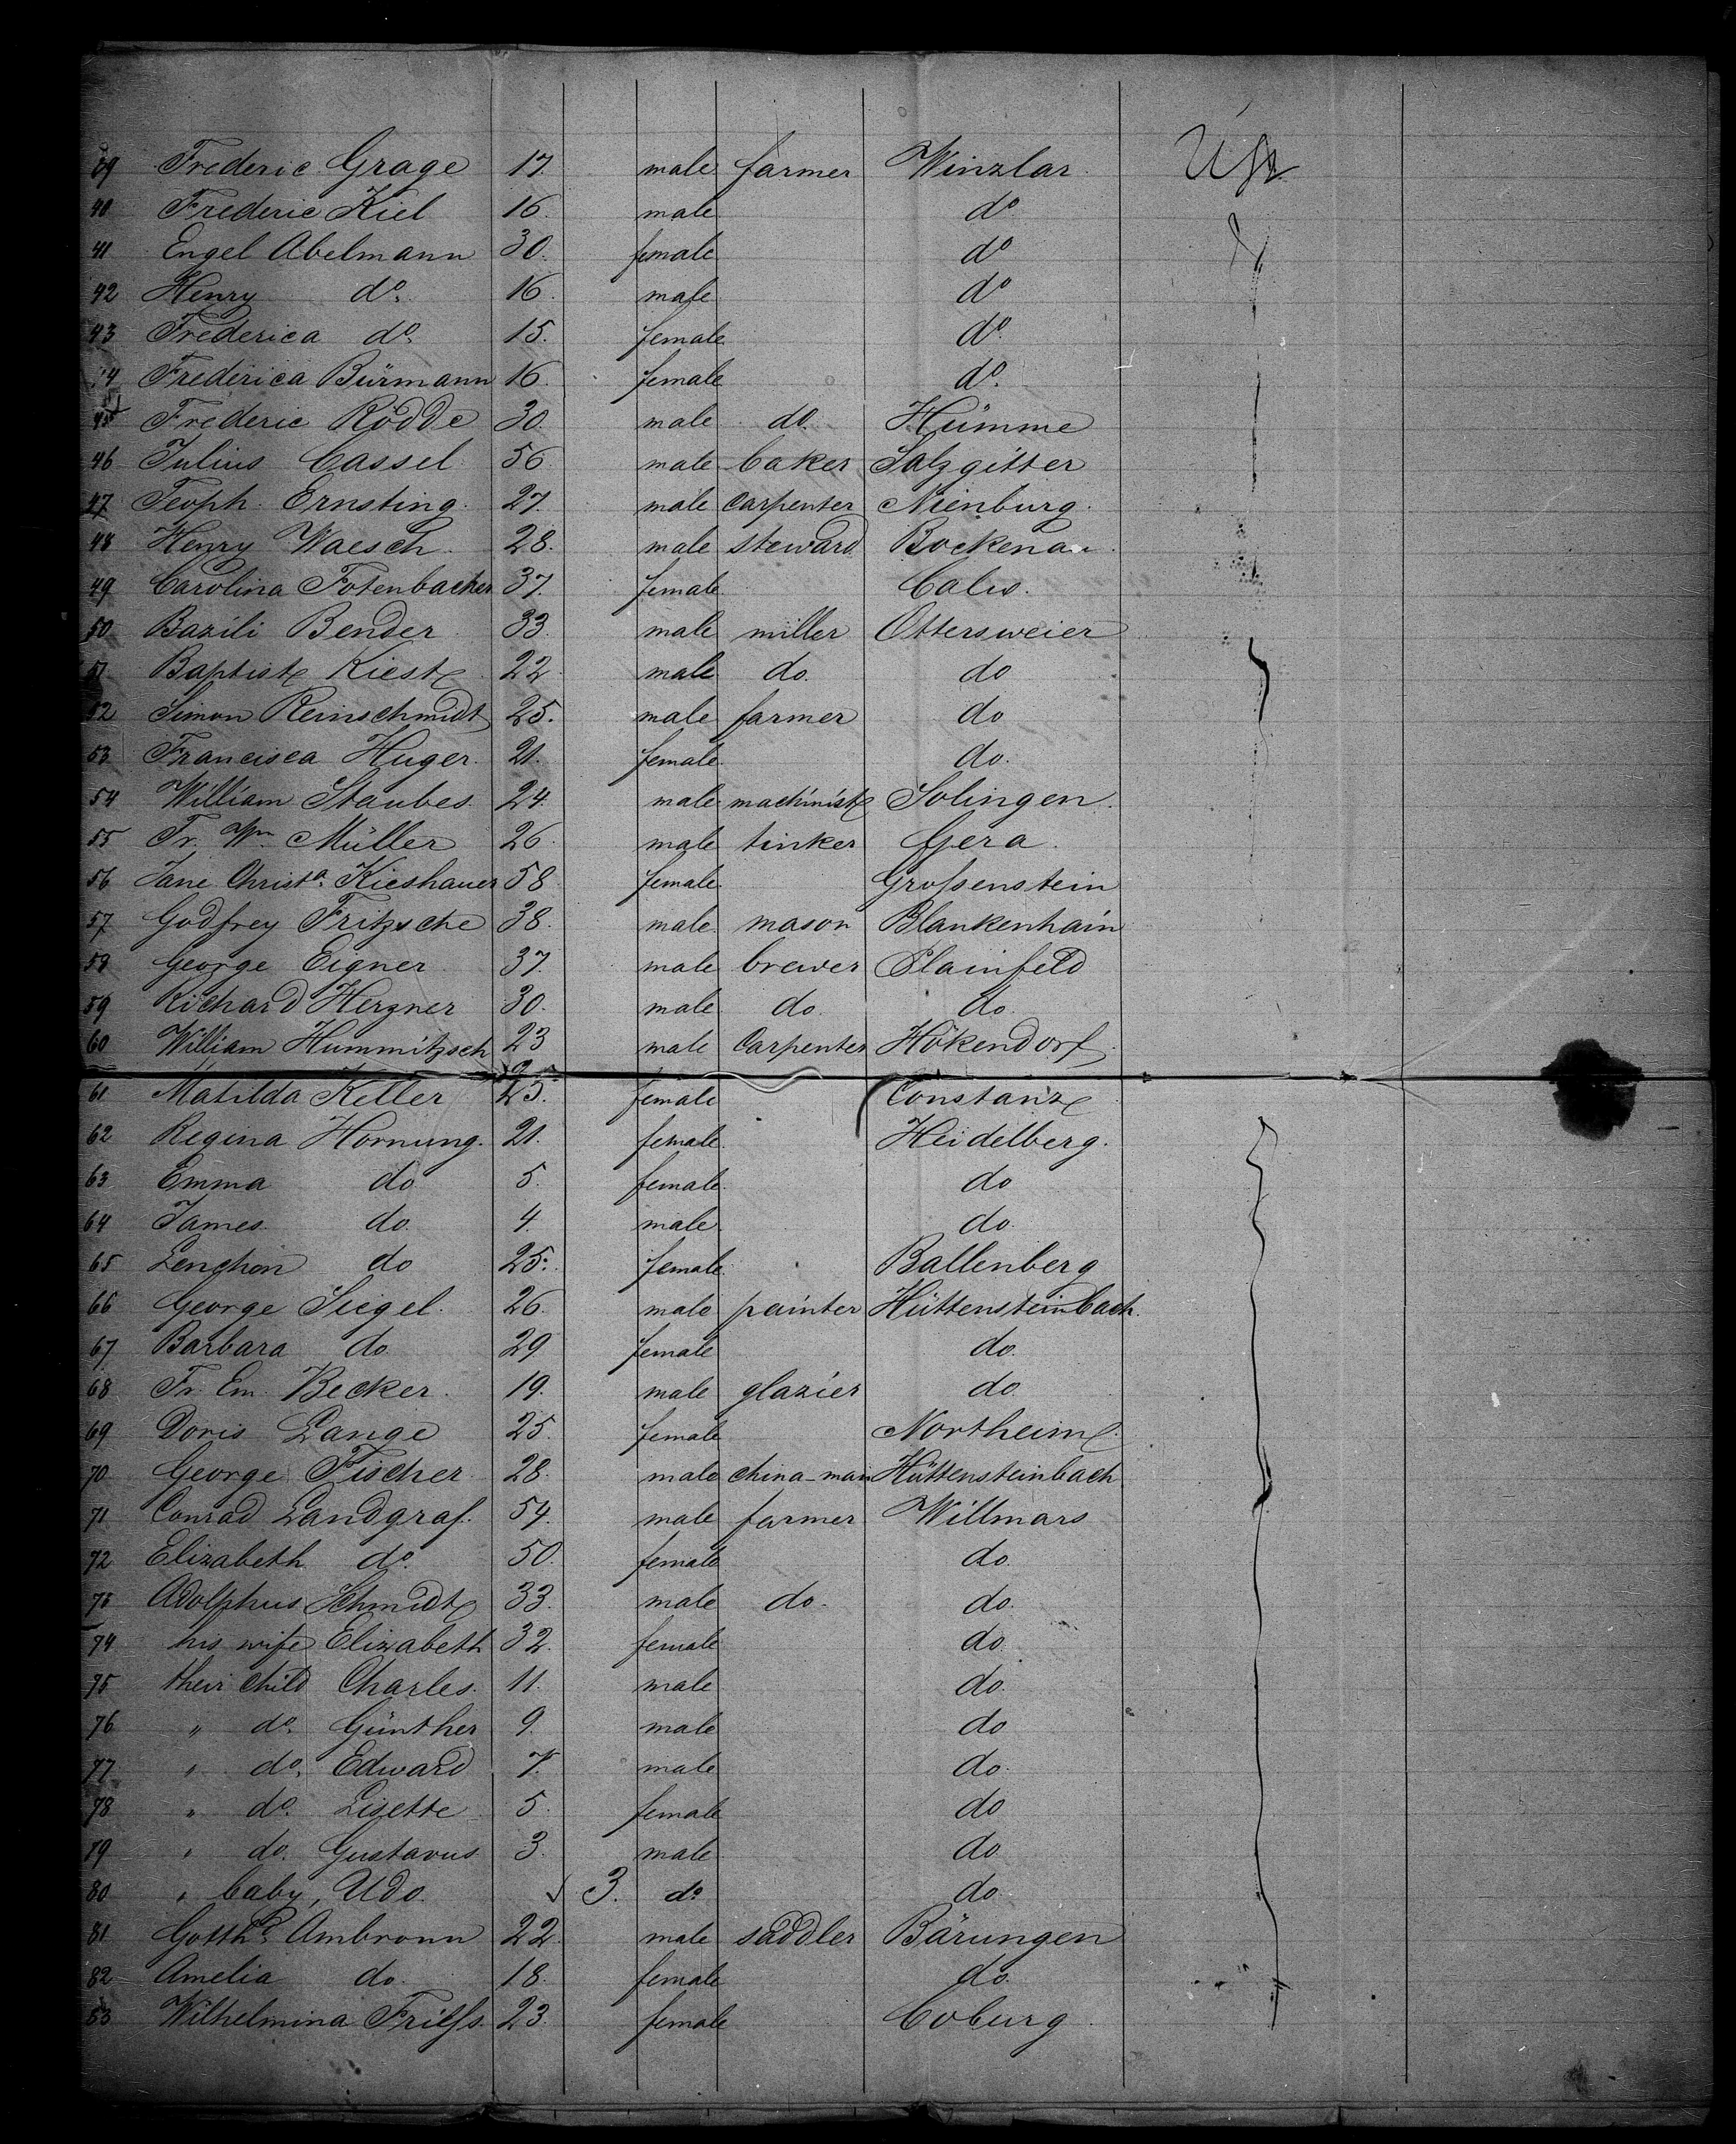 39 Frederic Grage 17. male farmer Winzlar. USA
40 Frederic Kiel 16. male do
41 Engel Abelmann 30. female do
42 Henry do. 16. male do
43 Frederica do. 15. female do.
44 Frederica Bürmann 16. female do.
45 Frederic Rödde 30. male do. Hümme
46 Julius Cassel 56 male baker Salzgitter
47 Teoph. Ernsting. 27. male carpenter Nienburg.
48 Henry Waesch. 28. male steward Bockenau.
49 Carolina Fotenbacher 37. female Calw.
50 Bazili Bender 33. male miller Ottersweier
51 Baptist Kiest 22. male do. do
52 Simon Reinschmidt 25. male farmer do
53 Francisca Huger. 21. female. do.
54 William Staubes. 24. male machinist Solingen.
55 Fr. Wm. Müller 26. male tinker Gera.
56 Jane Christa. Kieshauer 58 female. Großenstein
57 Godfrey Fritzsche 38. male. mason Blankenhain
58 George Eigner 37. male brewer Plainfeld
59 Richard Hergner 30. male do. do.
60 William Hummitzsch 23 male Carpenter Hökendorf.
61 Matilda Keller 25. female Constanz
62 Regina Hornung. 21. female. Heidelberg.
63 Emma do 5. female. do
64 James. do. 4. male do.
65 Lenchen do 25. female. Ballenberg
66 George Siegel. 26. male painter Hüttensteinbach.
67 Barbara do 29 female do.
68 Fr. Em. Becker. 19. male glazier do
69 Doris Lange 25. female Northeim.
70 George Fischer 28. male china-man Hüttensteinbach
71 Conrad Landgraf. 54. male farmer Willmars
72 Elizabeth do. 50. female do.
73 Adolphus Schmidt 33. male do. do.
74 his wife Elizabeth 32. female do
75 their child Charles. 11. male do.
76 " do. Günther 9. male do
77 " do. Edward 7. male do.
78 " do. Lisette 5. female do
79 " do. Gustavus 3. male do
80 " baby, Udo. 3. do do
81 Gotthd. Ambronn 22. male saddler Bärungen
82 Amelia do. 18. female do.
83 Wilhelmina 23. female Coburg.